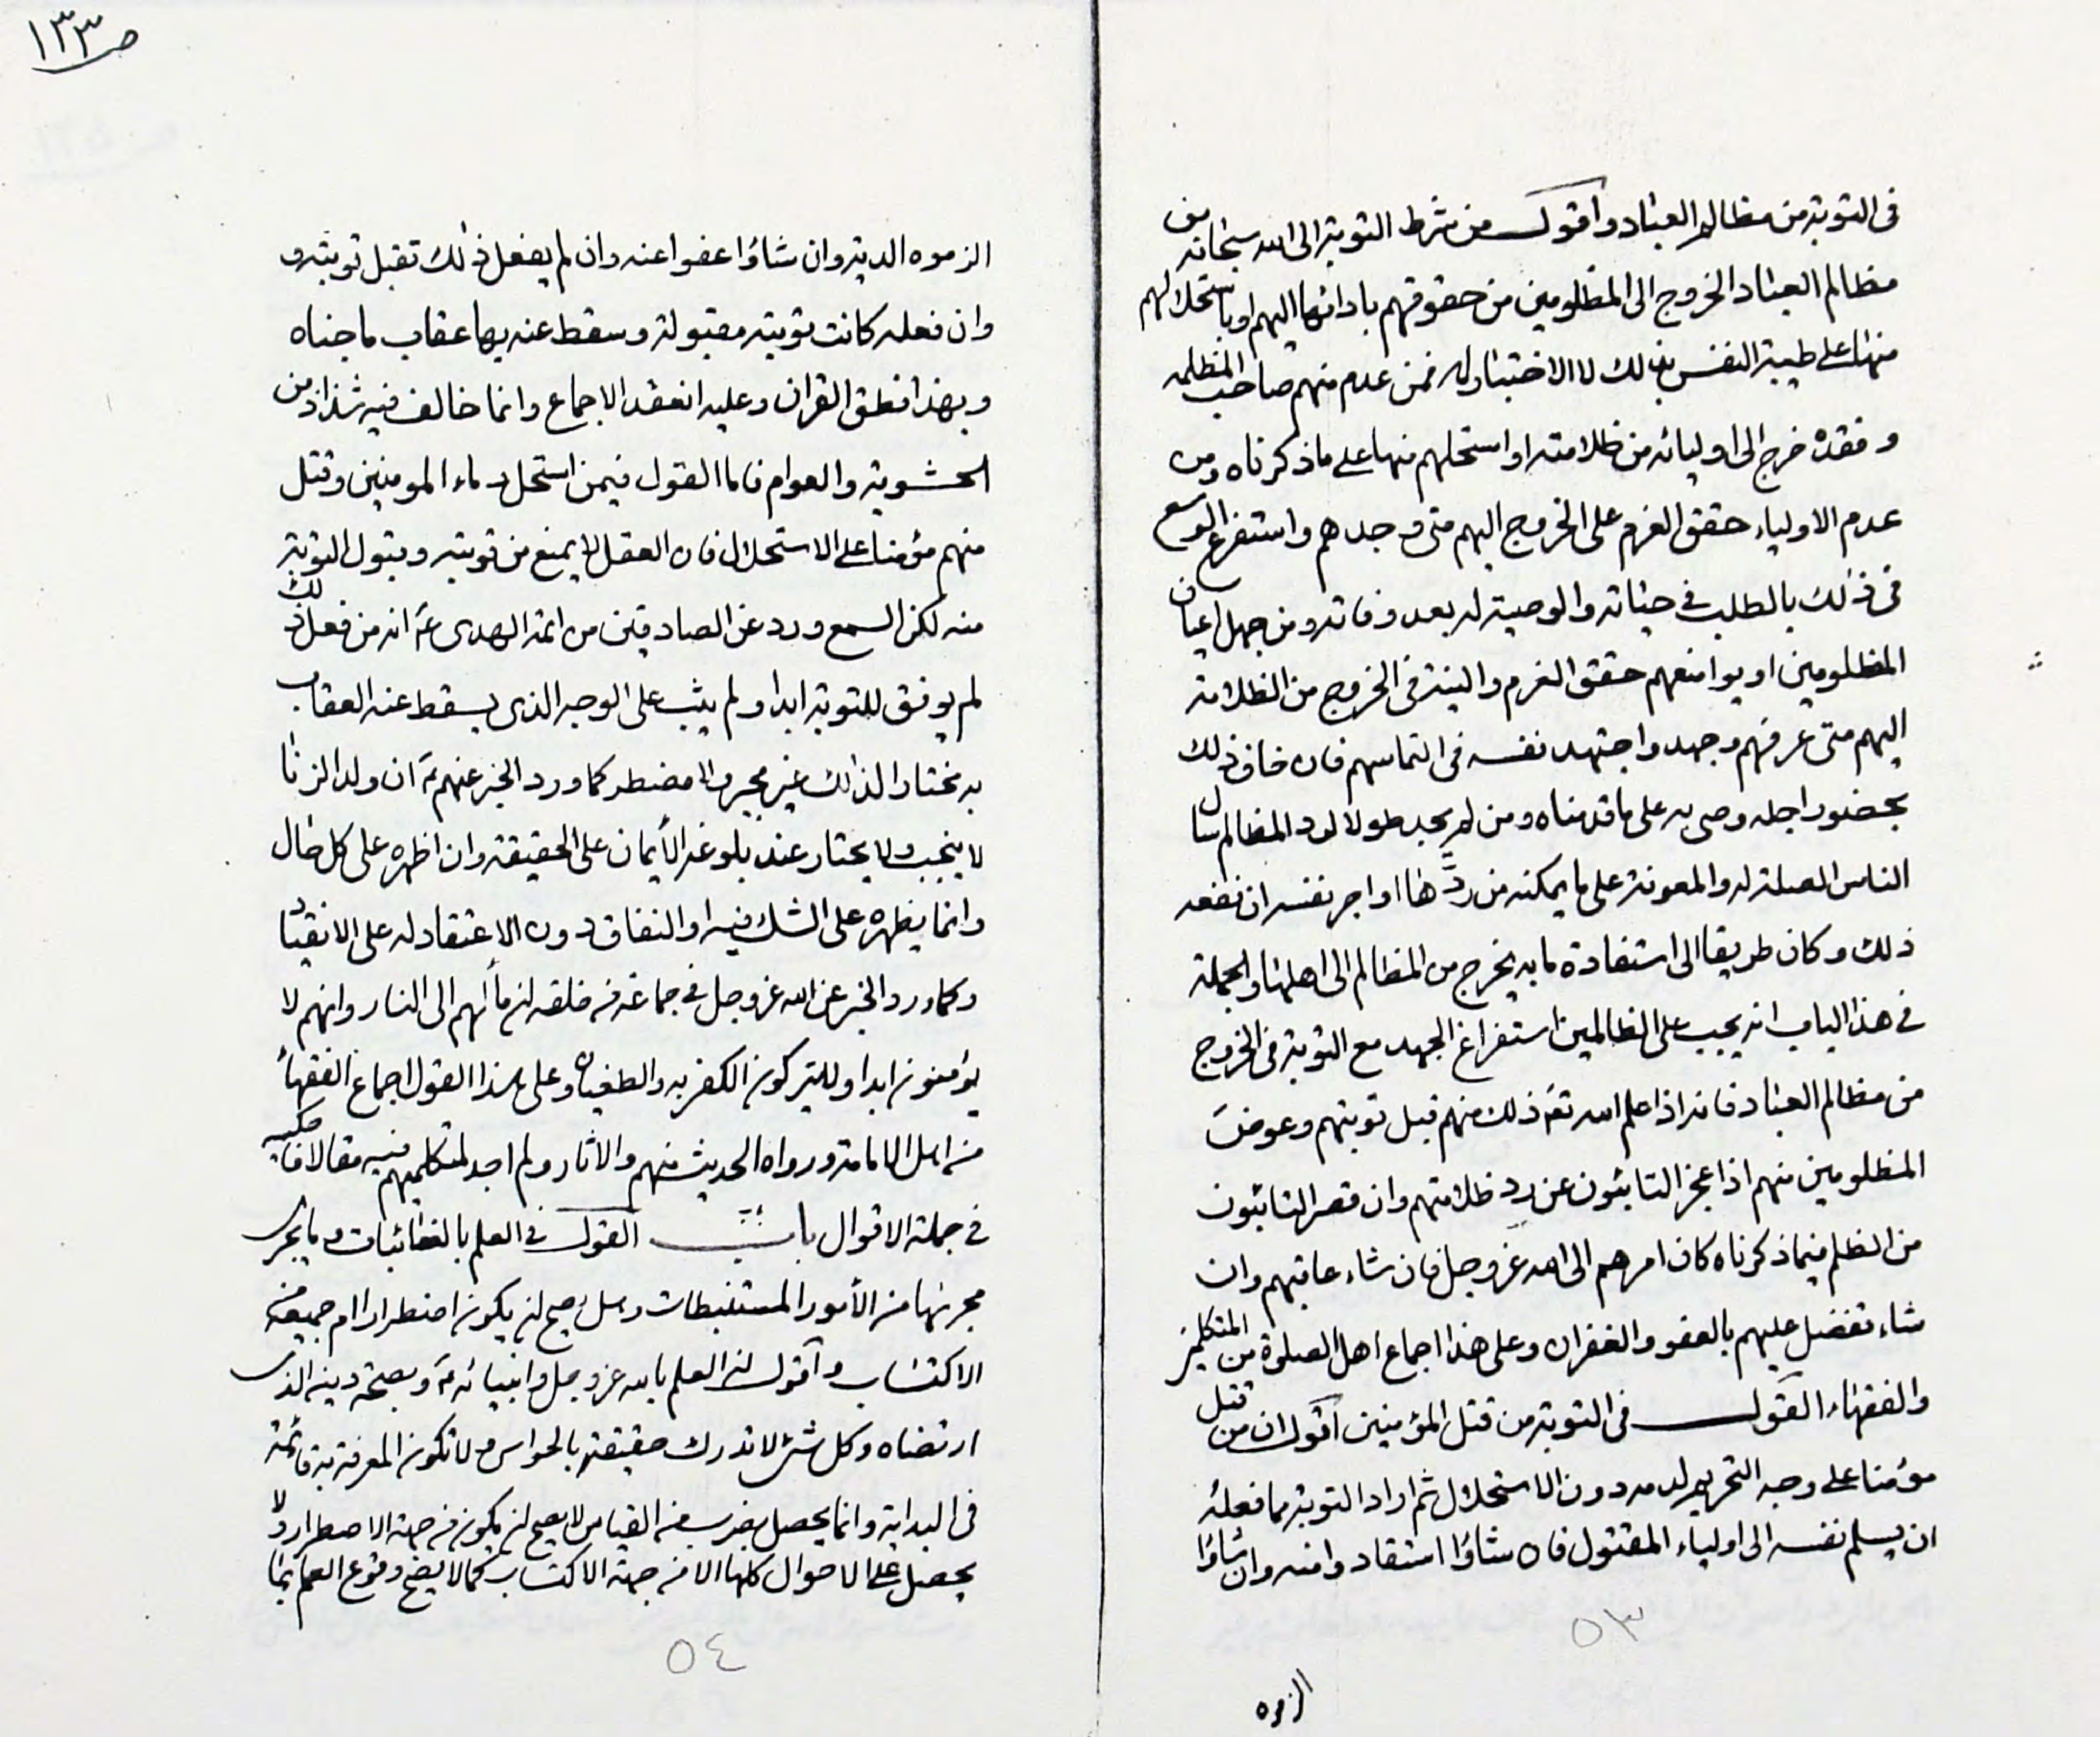 ص ١٣٣
فى التوبة من مظالم العباد واقول من شرط التوبة الى الله سبحانه من
مظالم العباد الخروج الى المظلومين من حقوقهم بادائها اليهم او باستحلالهم
منها على طيبة النفس بذلك والاختيار له فمن عدم منهم صاحب المظلمه
وفقده خرج الى اوليائه من ظلامته او استحلهم منها على ماذكرناه ومن
عدم الاولياء حقق العزم على الخروج اليهم متى وجدهم واستفرغ الوسع
فى ذلك بالطلب فى حياته والوصية له بعد وفاته ومن جهل اعيان
المظلومين او مواضعهم حقق العزم والنية فى الخروج من الظلامة
اليهم متى عرفهم وجهد واجتهد نفسه فى التماسهم فان خاف ذلك
بحضور اجله وصى به على ما قدمناه ومن لم يجد طولا لرد المظالم سال
الناس الصلة له والمعونة على ما يمكنه من ردها او اجر نفسه ان نفعه
ذلك وكان طريقا الى استفادة ما به يخرج من المظالم الى اهلها والجملة
فى هذا الباب انه يجب على الظالمين استفراغ الجهد مع التوبة فى الخروج
من مظالم العباد فانه اذا علم الله تع ذلك منهم قبل توبتهم وعوض
المظلومين منهم اذا عجز التائبون عن رد ظلامتهم وان قصر التائبون
من الظلم فيما ذكرناه كان امرهم الى الله عز وجل فان شاء عاقبهم وان
شاء تفضل عليهم بالعفو والغفران وعلى هذا اجماع اهل الصلوة من المتكلمين
والفقهاء القول فى التوبة من قتل المؤمنين اقول ان من قتل
مؤمنا على وجه التحريم لدمه دون الاستحلال ثم اراد التوبة مما فعله
ان يسلم نفسه الى اولياء المقتول فان شاؤا استقادوا منه وان شاؤا
٥٣
الزموه
الزموه الدية وان شاؤا عفوا عنه وان لم يفعل ذلك تقبل توبته و
وان فعله كانت توبته مقبولة وسقط عنه بها عقاب ما جناه
وبهذا نطق القران وعليه انعقد الاجماع وانما خالف فيه شذاذ من
الحشوية والعوام فاما القول فيمن استحل دماء المومنين وقتل
منهم مؤمنا على الاستحلال فان العقل لا يمنع من توبته وقبول التوبة
منه لكن السمع ورد عن الصادقين من ائمة الهدى ع انه من فعل ذلك
لم يوفق للتوبة ابدا ولم يتب على الوجه الذى يسقط عنه العقاب
به مختارا لذلك غير مجبر ولا مضطر كما ورد الخبر عنهم ع ان ولد الزنا
لا ينجب ولا يختار عند بلوغه الأيمان على الحقيقة وان اظهره على كل حال
وانما يظهره على الشك فيه او النفاق دون الاعتقاد له على الانقياد
وكما ورد الخبر عن الله عز وجل فى جماعة من خلقه ان مألهم الى النار وانهم لا
يؤمنون ابدا ولا يتركون الكفر به والطغيان وعلى هذا القول اجماع الفقهاء
من اهل الامامة ورواه الحديث منهم والاثار ولم اجد لمتكلميهم فيه مقالا فاحكيه
فى جملة الاقوال باب القول فى العلم بالغائبات وما يجرى
مجريها من الأمور المستنبطات وهل يصح ان يكون اضطرارا ام جميعه من
الاكتساب واقول ان العلم بالله عز وجل وانبيائه ع وبصحة دينه الذى
ارتضاه وكل شئ لا تدرك حقيقته بالحواس ولا تكون المعرفة به قائمة
فى البداية وانما يحصل بضرب من القياس لا يصح ان يكون من جهة الاضطرار ولا
يحصل على الاحوال كلها الا من جهة الاكتساب كما لا يصح وقوع العلم بما
٥٤